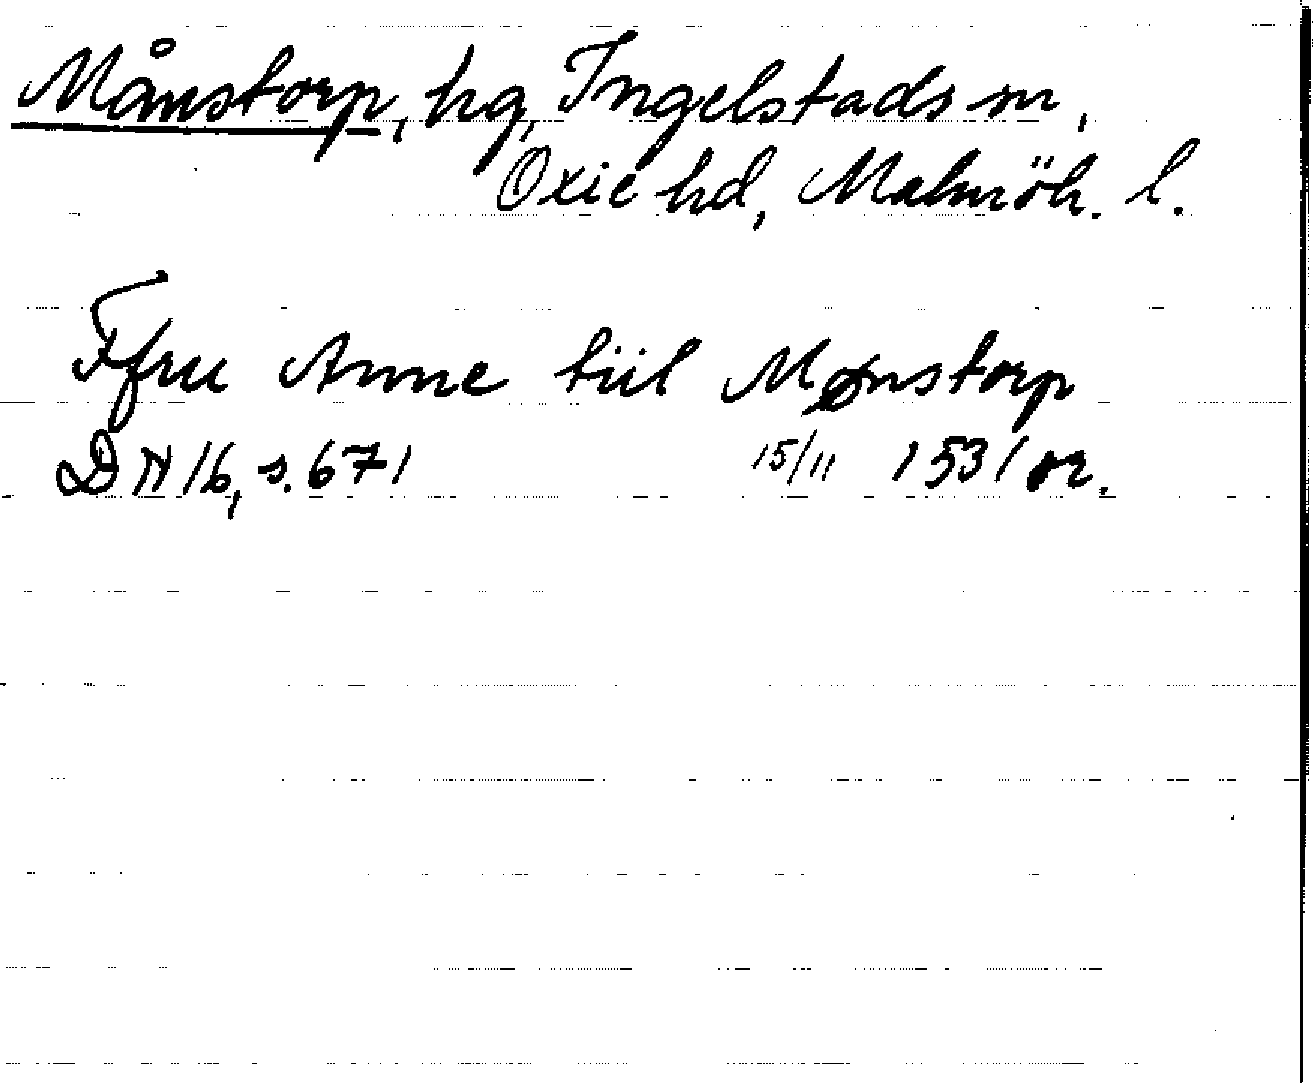 Månstorp, hg, Ingelstads sn,
Oxie hd, Malmöh. l.
Ffru Anne tiil Mønstorp
DN 16, s. 671 15/11 1531 or.